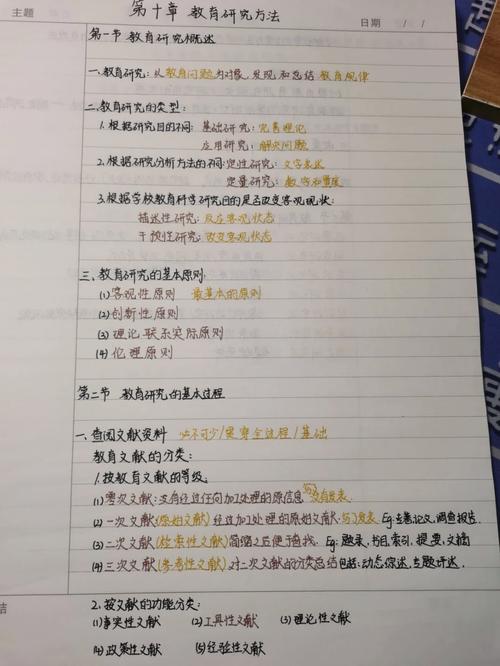 主题
第十章 教育研究方法
日期 / /
第一节 教育研究概述
一.教育研究:从教育问题为对象,发现和总结教育规律
二.教育研究的类型:
1.根据研究目的不同:基础研究:完善理论
应用研究:解决问题
2.根据研究分析方法的不同:定性研究:文字表述
定量研究:数字和量度
3.根据学校教育科学研究目的是否改变客观现状:
描述性研究:反应客观状态
干预性研究:改变客观状态
三.教育研究的基本原则:
(1)客观性原则 最基本的原则
(2)创新性原则
(3)理论联系实际原则
(4)伦理原则
第二节 教育研究的基本过程
一.查阅文献资料 必不可少/贯穿全过程/基础
教育文献的分类:
1.按教育文献的等级.
(1)零次文献:没有经过任何加工处理的原信息 与没有发表.
(2)一次文献(原始文献)经过加工处理的原始文献.与了发表. Eg:专著论文,调查报告.
(3)二次文献(检索性文献)简缩之后便于查找. Eg:题录,书目,索引,提要,文摘
(4)三次文献(参考性文献)对二次文献的分类总结包括:动态综述,专题评述.
结
2.按文献的功能分类:
(1)事实性文献 (2)工具性文献 (3)理论性文献
(4)政策性文献 (5)经验性文献